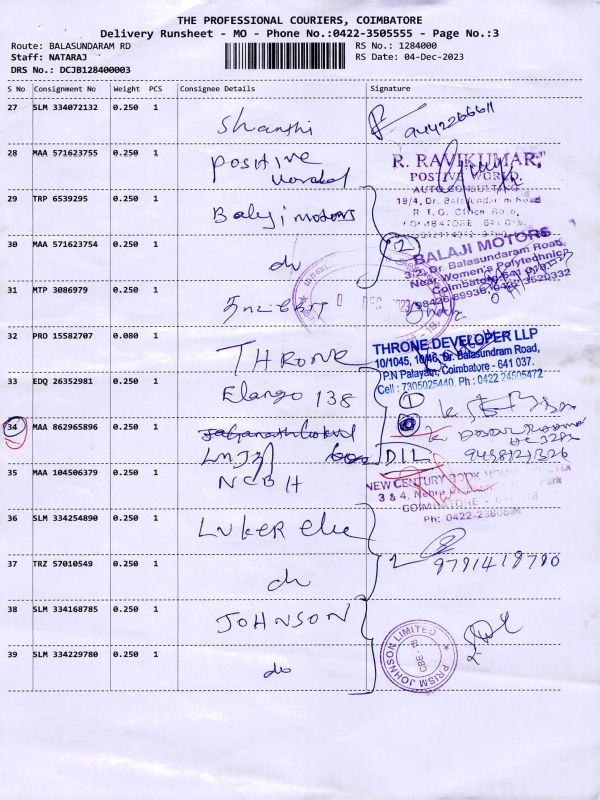 THE PROFESSIONAL COURIERS, COIMBATORE
Delivery Runsheet - MO - Phone No.:0422-3505555 - Page No.:3
Route: BALASUNDARAM RD
RS No.: 1284000
Staff: NATARAJ
RS Date: 04-Dec-2023
DRS No.: DCJB128400003
S No Consignment No Weight PCS Consignee Details Signature
27 SLM 334072132 0.250 1 Shanthi
28 MAA 571623755 0.250 1 Positive World
R. RAVIKUMAR,
POSITIVE WORLD.
AUTO CONSULTING
19/4, Dr. Balasundaram Road
R. T. O. Office Road,
COIMBATORE
29 TRP 6539295 0.250 1 Balaji motors
30 MAA 571623754 0.250 1 do
2
BALAJI MOTORS
3/2, Dr. Balasundaram Road,
Near Women's Polytechnic
Coimbatore
31 MTP 3086979 0.250 1
DEC 2023
32 PRO 15582707 0.080 1 THRONE
THRONE DEVELOPER LLP
10/1045, 10/46, Dr. Balasundram Road,
P.N Palayam, Coimbatore - 641 037.
Cell : 7305025440, Ph : 0422 24505472
33 EDQ 26352981 0.250 1 Elango 138
1
34 MAA 862965896 0.250 1
D.I.L
35 MAA 104506379 0.250 1 NCBH
NEW CENTURY BOOK HOUSE
3 & 4,
COIMBATORE
Ph: 0422-2380554
36 SLM 334254890 0.250 1 LUKER ele
9791419790
37 TRZ 57010549 0.250 1 do
38 SLM 334168785 0.250 1 JOHNSON
PRISM JOHNSON LIMITED
CBE
39 SLM 334229780 0.250 1 do